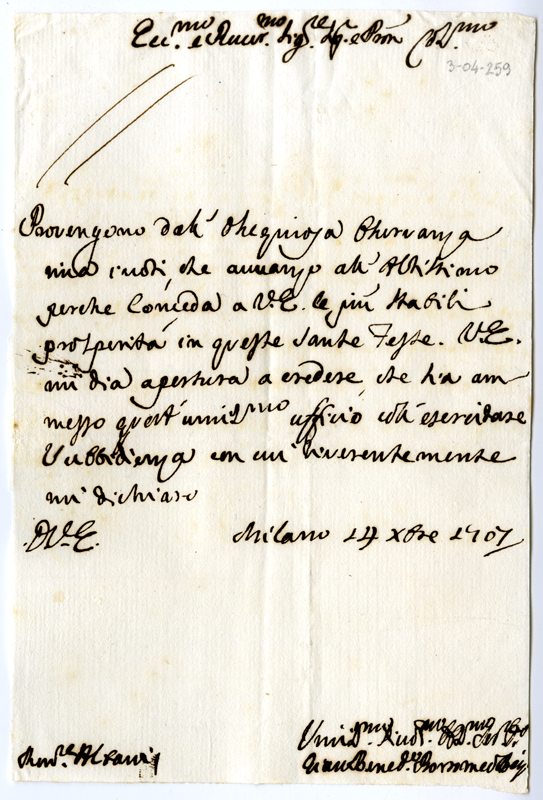 Ecc.mo e Rever.mo Sig.re Sig.e Pron Col.mo
3-04-259
Provengono dall' Ossequiosa Osservanza
mia i voti, che avvanzo all' Altissimo
perche Conceda a V.E. le più stabili
prosperità in queste Sante Feste. V.E.
mi dia apertura a credere che ha am-
messo quest' umiliss.mo ufficio coll' esercitare
l'ubbidienza con cui riverentemente
mi dichiaro
D.V.E. Milano 14 xbre 1707
Mons.re Albani
Umiliss.mo Divot.mo Obb.mo Ser.re
Gian Bened.o Borromeo